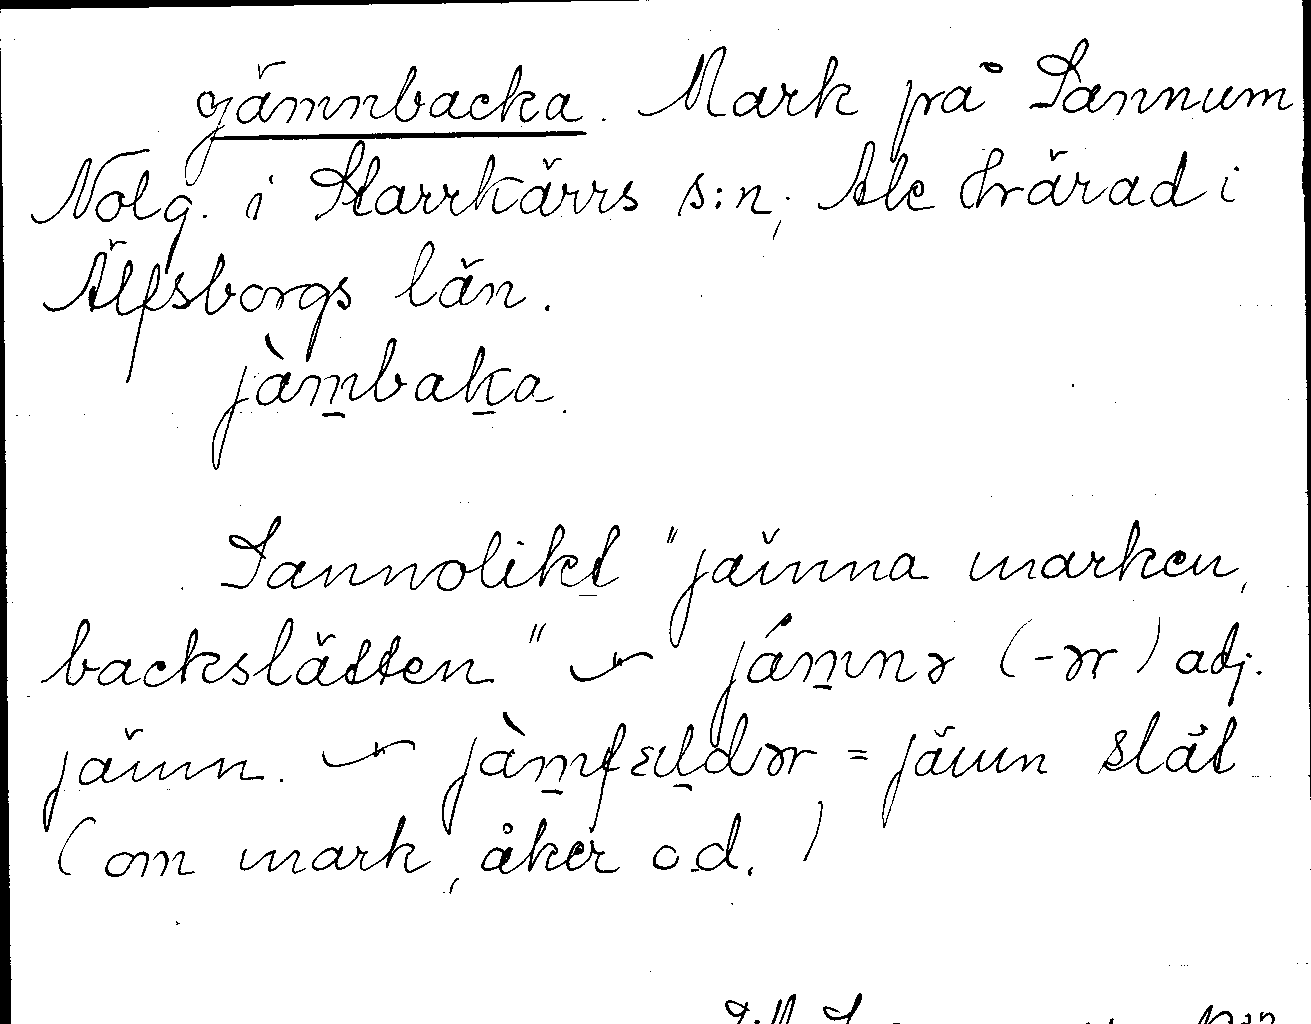 jämnbacka. Mark på Sannum
Nolg. i Starrkärrs s:n, Ale härad i
Älfsborgs län.
jàm̲bak̲a.
Sannolikt "jämna marken,
backslätten" ⁓ jám̲nə (-ər) adj.
jämn. ⁓ jàm̲fɛl̲dər = jämn slät
(om mark, åker o.d.)